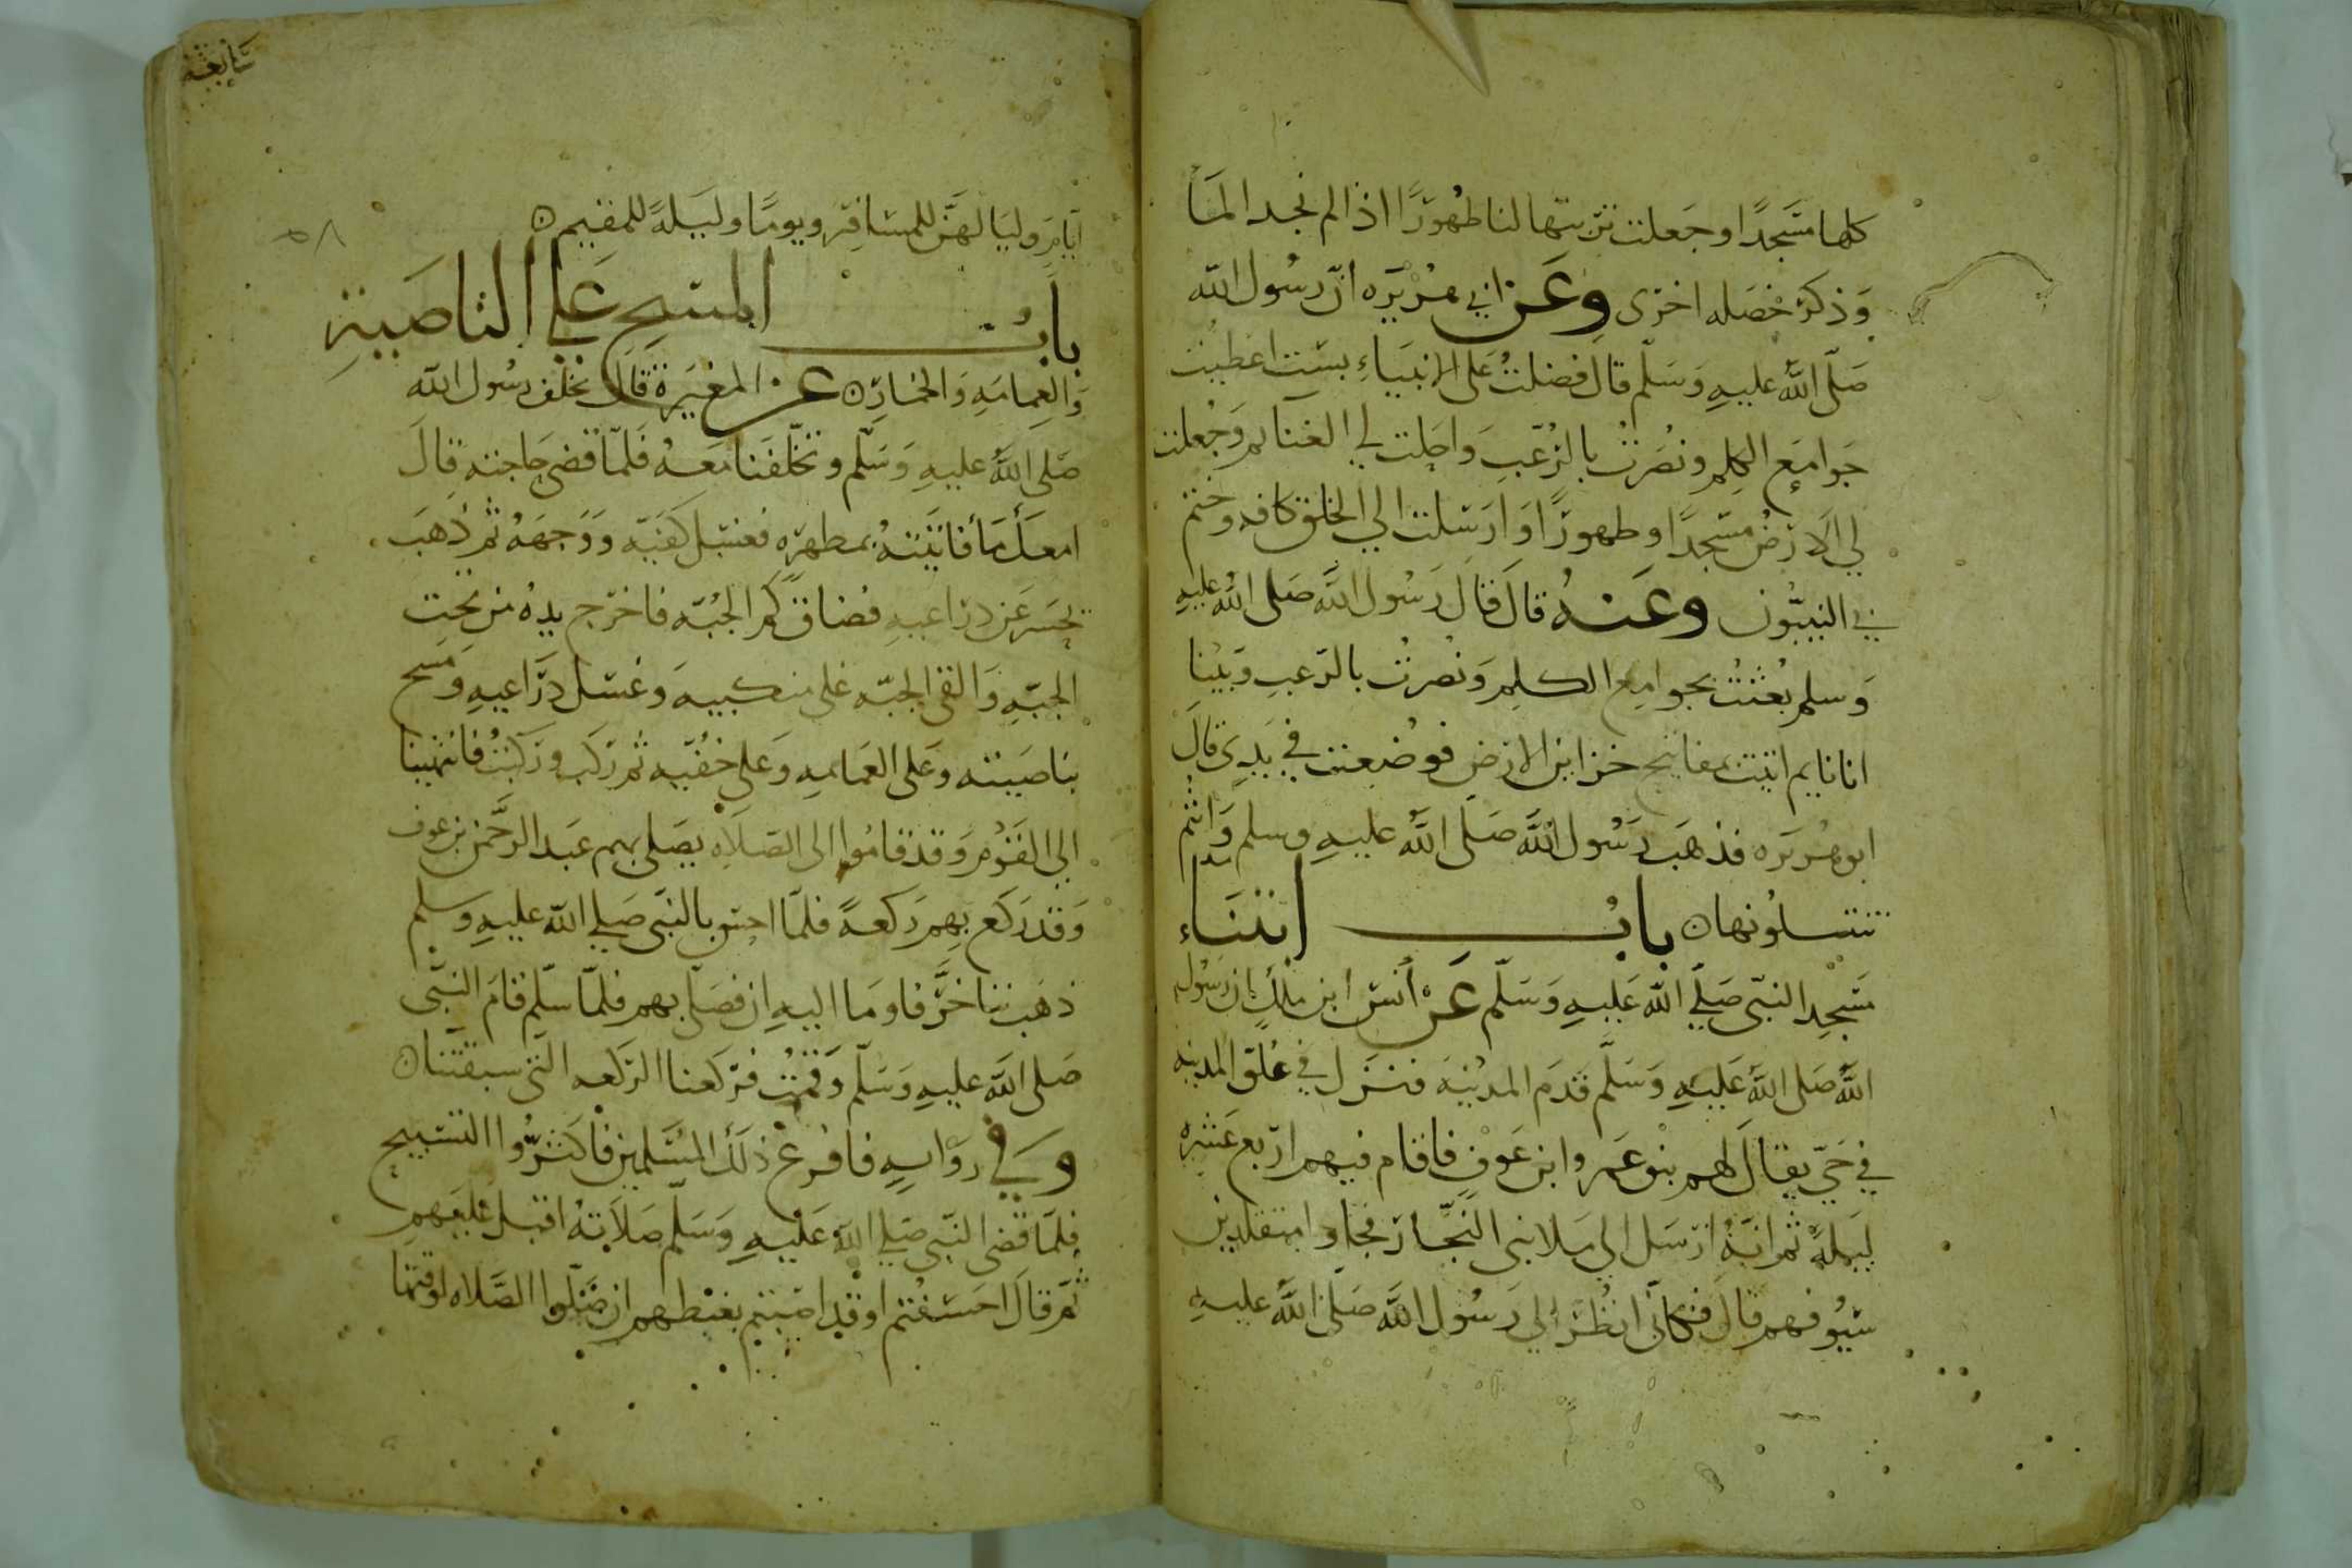 كلها مسجدا وجعلت تربتها لنا طهورًا اذا لم نجد الماء
وَذكر خصله اخرى وعن ابي هريره انّ رسُول الله
صَلّى اللهُ عليهِ وَسَلّم قال فضلتُ على الانبيَاءِ بستٍ اعطيتُ
جَوامعَ الكلِم ونُصرتُ بالرُعبِ وَاحلت لي الغنايم وَجُعلت
لي الارضُ مسجدًا وطهورًا وَارسلت الي الخلق كافه وختم
بي النبيّون وعَنهُ قال قال رَسُول اللهَ صَلى اللهُ عليهِ
وَسلم بُعثتُ بجوامِع الكلِم وَنصرتُ بالرعبِ وَبَينا
انا نايم اتيت بمفاتيح خزاين الارضِ فوضعت في يَدِي قالَ
ابو هُريَره فذهَب رَسُول اللهَ صَلّى اللهُ عليهِ وسلم وَانتُم
تنتسلُونها بابُ ابتنَاء
مَسجِد النبّي صَلّي الله عَليهِ وَسَلّم عَن أنس ابن ملك ان رَسُول
اللهَ صَلى اللهَ عَليهِ وَسَلّم قدَم المدينَه فنزل في عُلو المدينه
في حَيّ يقال لهم بنو عَمرو ابن عَوف فاقام فيهم اربع عَشره
ليلةً ثم انهُ ارسَل الي ملا بني النجّار فجاوا متقلدين
سيُوفهم قال فكانّي انظُر الي رَسُول اللهَ صَلى اللهَ عليهِ
ايّام وليَاليهَنَّ للمسَافِر ويومًا وليَلةً للمقيم
بابُ المسح على الناصَيةِ
وَالعِمامَهِ وَالخمار عن المغيرَة قال تخلف رسُول الله
صَلى اللهُ عليهِ وَسَلّم وتخلّفنا مَعَهُ فَلمّا قضى حَاجته قال
امعَك مَأ فاتيَتهُ بمطهره فغسَل كفيّه وَوَجهَهُ ثم ذهَب
يحَسر عَن ذراعيهِ فضاق كم الجُبّه فاخرَج يدهُ من تحت
الجبّهِ وَالقى الجبّه على منكبيه وَغسَل ذراعيهِ وَمسَح
بناصَيته وعَلى العَمامهِ وَعَلى خفُيّه ثم ركب وركبتُ فانتهينا
الي القوُم وَقد قامُوا الى الصَلاه يصَلي بهم عَبد الرحَّمن بن عوف
وَقد ركع بهم ركعةً فلمّا احس بالنبَي صَلي الله عليهِ وسلم
ذهَب يتاخرَّ فاومَا اليهِ ان فصَلّى بهم فلمّا سَلّم قامَ النبّي
صَلى اللهَ عليهِ وَسَلّم وَقمتُ فركعنا الركعه التي سبقتنا
وفي روَايهِ فافزع ذلَك المُسَلمين فاكثرُّوا التسبيح
فلمّا قضى النبّي صَلي اللهَ عَليهِ وَسَلّم صَلاته اقبل عليهم
ثم قال احسَنتُم او قد اصَبتم يغبطهم ان صَلوا الصَّلاه لوقتها